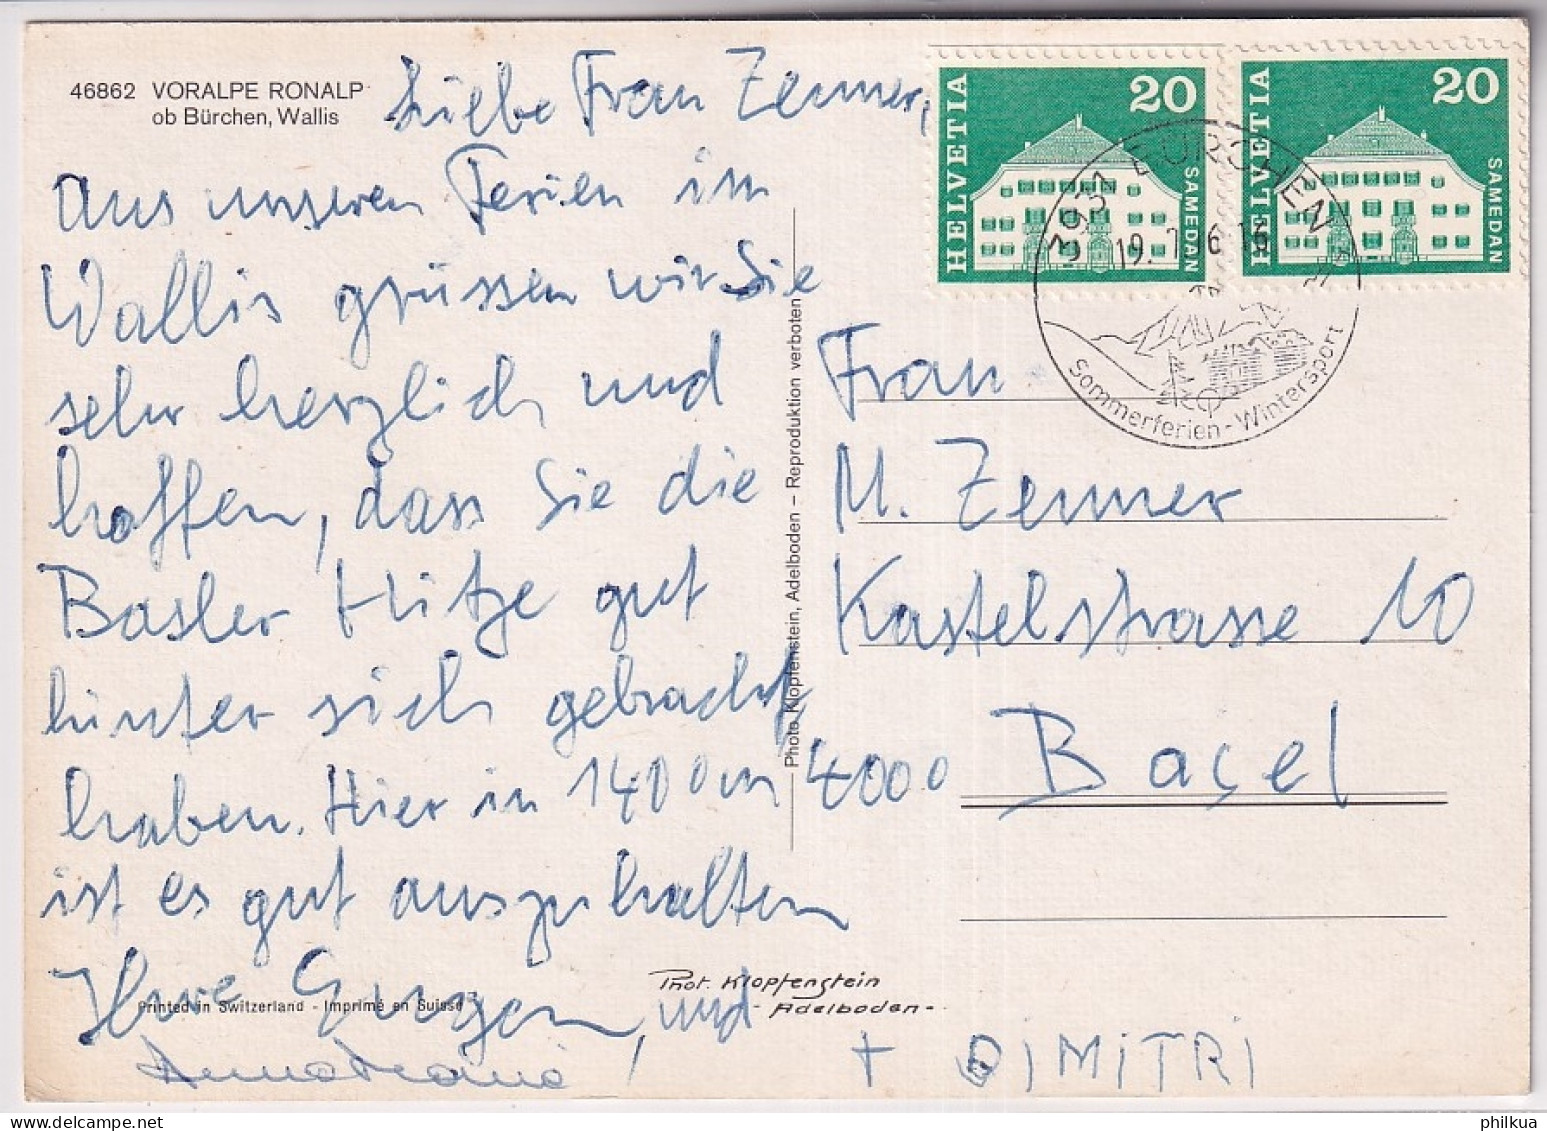 46862 VORALPE RONALP
ob Bürchen, Wallis
Liebe Frau Zenner,
aus unseren Ferien im
Wallis grüssen wir Sie
sehr herzlich und
hoffen, dass Sie die
Basler Hitze gut
hinter sich gebracht
haben. Hier in 1400 m
ist es gut auszuhalten
Ihre Eugen und
Annamaria
+ DIMITRI
Printed in Switzerland - Imprimé en Suisse
Phot. Klopfenstein
- Adelboden -
Photo Klopfenstein, Adelboden – Reproduktion verboten
HELVETIA 20 SAMEDAN
HELVETIA 20 SAMEDAN
3931 BÜRCHEN
19. 7.
Sommerferien - Wintersport
Frau
M. Zenner
Kastelstrasse 10
4000 Basel
philkua